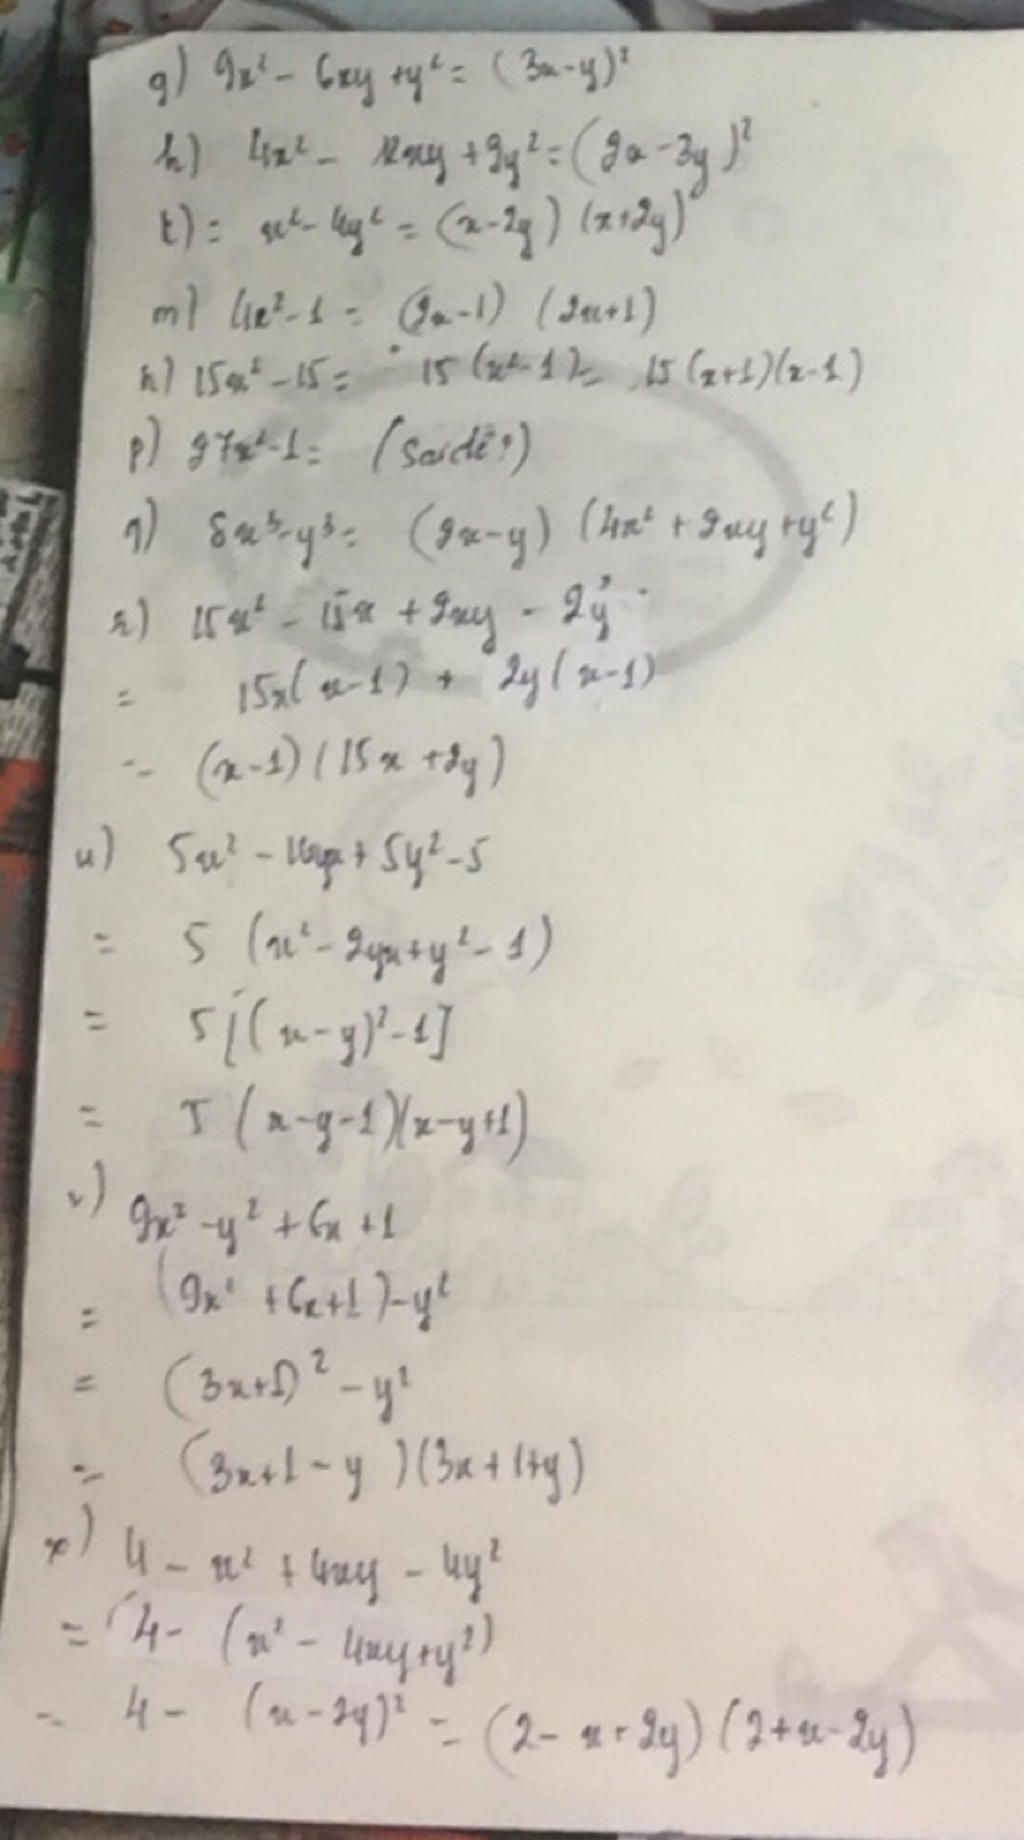 g) 9x² - 6xy + y² = (3x-y)²
h) 4x² - 12xy + 9y² = (2x-3y)²
t) = x² - 4y² = (x-2y) (x+2y)
m) 4x² - 1 = (2x-1) (2x+1)
n) 15x² - 15 = 15 (x²-1) = 15 (x+1)(x-1)
p) 27x² - 1 = (Sai đề?)
q) 8x³ - y³ = (2x-y) (4x² + 2xy + y²)
r) 15x² - 15x + 2xy - 2y
= 15x(x-1) + 2y(x-1)
= (x-1)(15x+2y)
u) 5x² - 10yx + 5y² - 5
= 5 (x² - 2yx + y² - 1)
= 5[(x-y)² - 1]
= 5 (x-y-1)(x-y+1)
v) 9x² - y² + 6x + 1
= (9x² + 6x + 1) - y²
= (3x+1)² - y²
= (3x+1-y)(3x+1+y)
x) 4 - x² + 4xy - 4y²
= 4 - (x² - 4xy + y²)
= 4 - (x-2y)² = (2-x+2y) (2+x-2y)